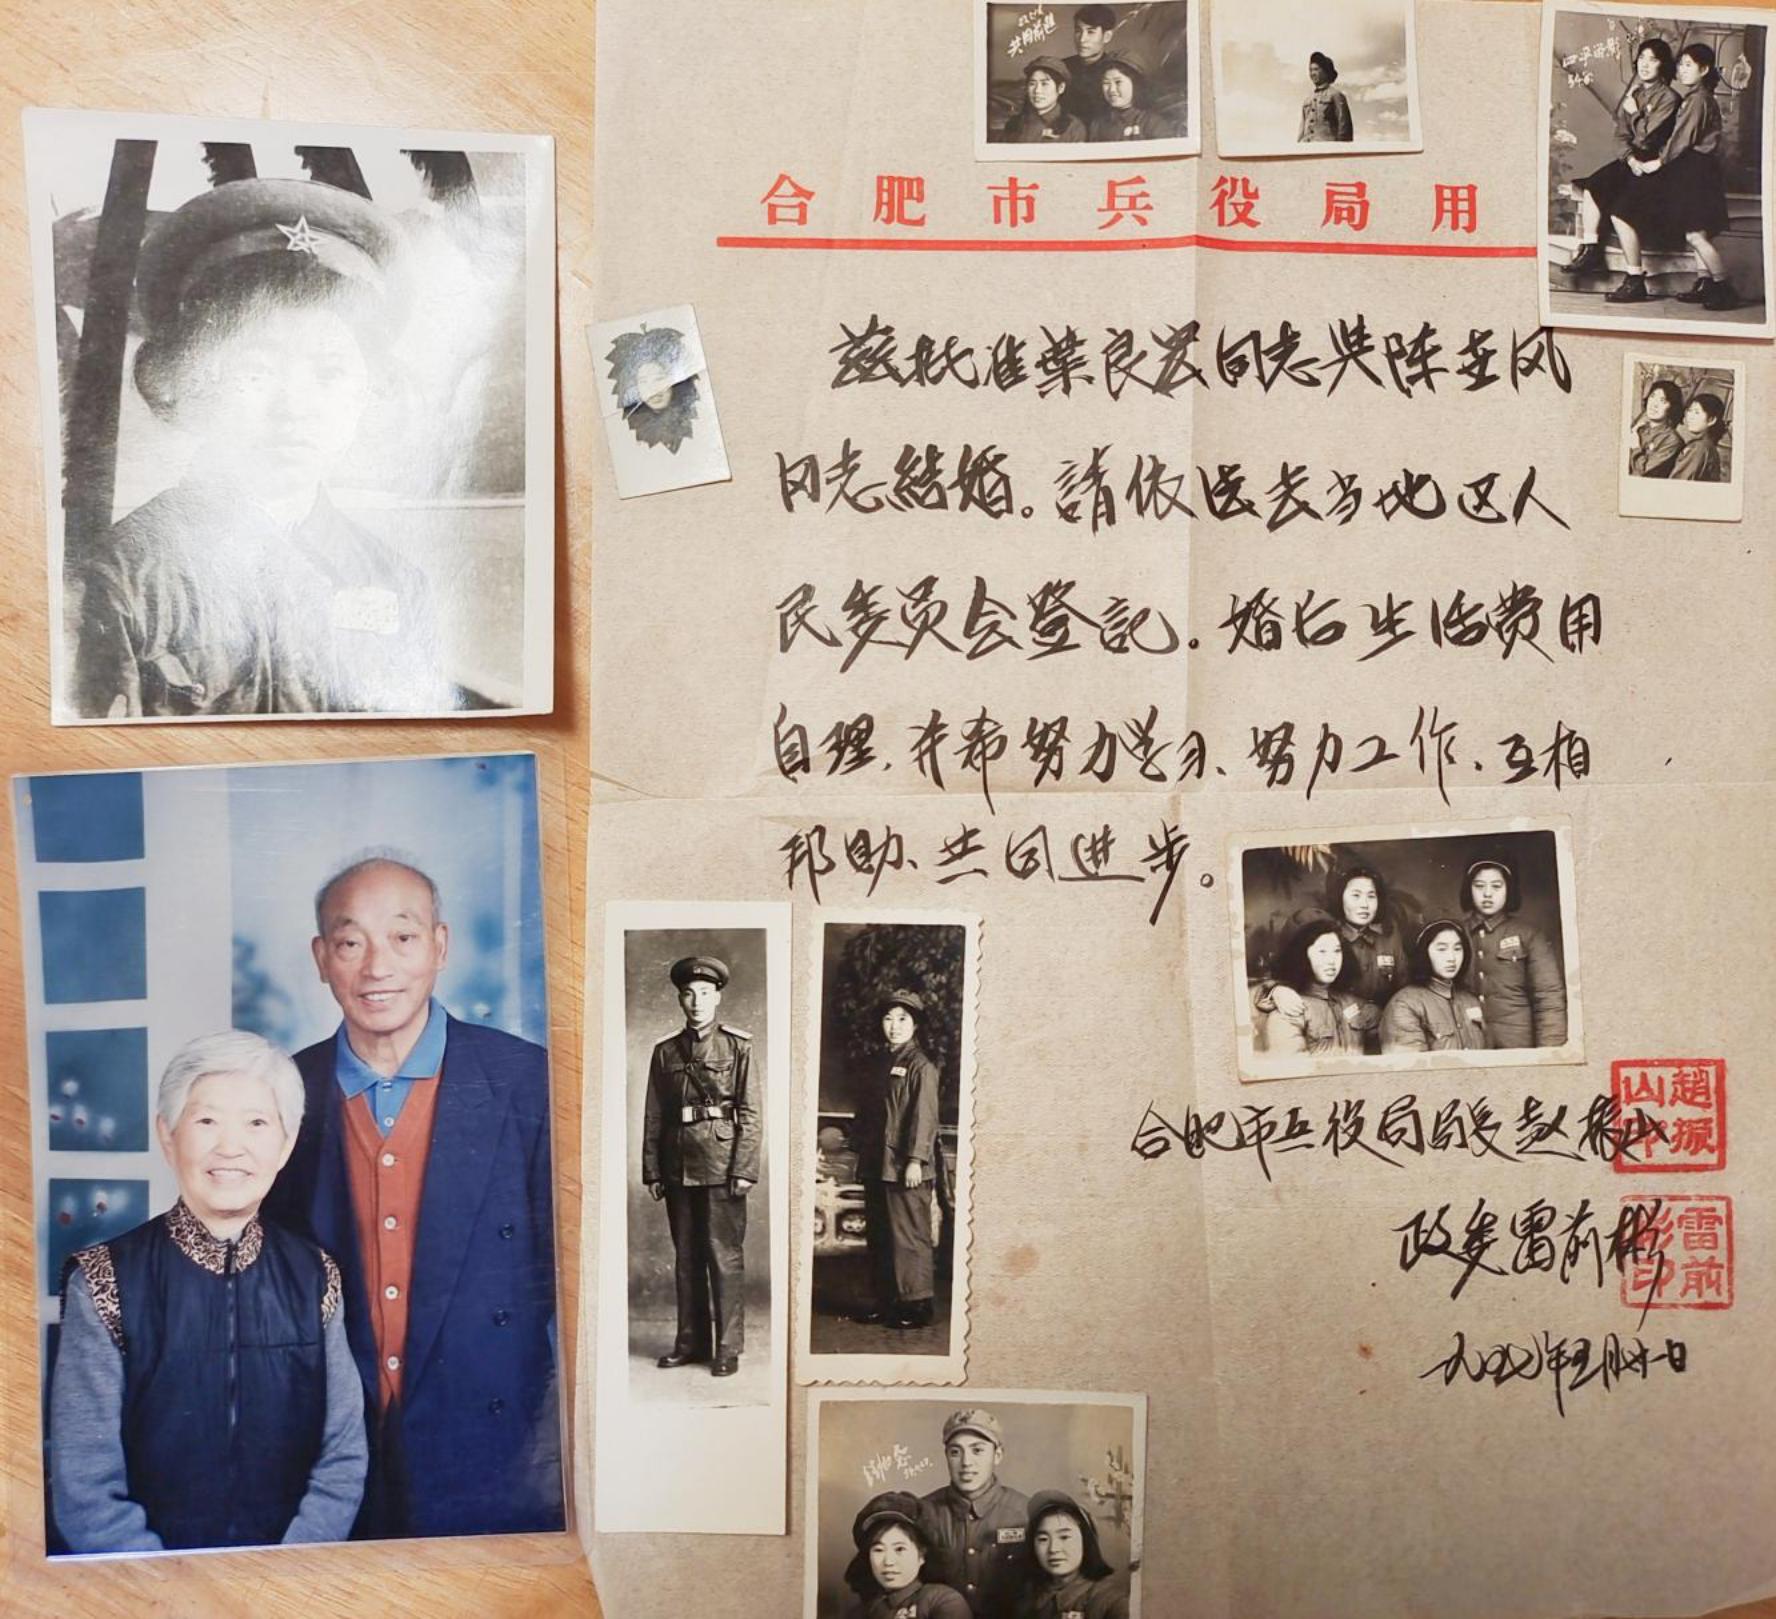 共同前进
四平留影
54.6.
合肥市兵役局用
茲批准葉良宏同志与陈桂风
同志結婚。請依法去当地区人
民委员会登記。婚后生活费用
自理,并希努力学习、努力工作、互相
邦助、共同进步。
合肥市兵役局局長赵振山
趙振山印
政委雷前彬
雷前彬印
一九五七年五月廿一日